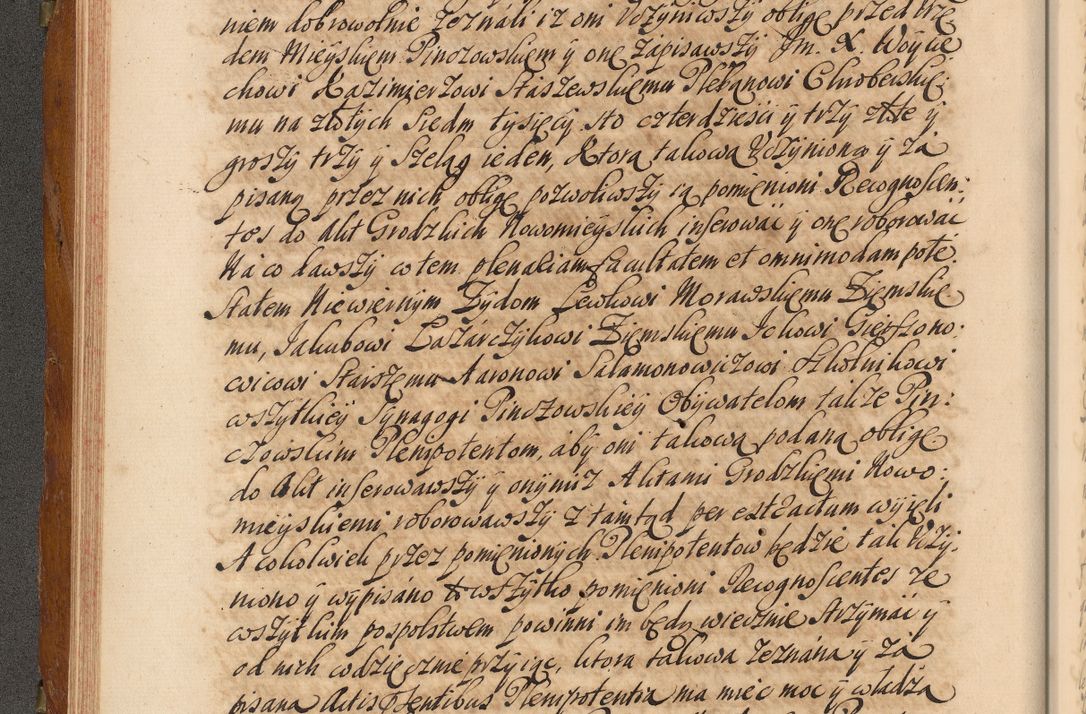 niem dobrowolnie zeználi iz oni Vczyniwszy oblige przed vrzę
dem Mieyskiem Pinczowskiem y onę zápisawszy Jm. X. Woycie
chowi Kazimierzowi Staszewskiemu Plebanowi Chroberskie:
mu na złotych Siedm tysięcy sto czterdzieści y trzy złte y
groszy trzy y Szeląg ieden, Ktorą takową Vczynioną y zá
pisaną przez nich oblige pozwoliwszy są pomienioni Recognoscen:
tes do Akt Grodzkich Nowomieyskich inserować y onę roborować
Ná co dawszy w tem plenariam facultatem et omnimodam pote:
statem Niewiernym Zydom Lewkowi Morawskiemu Ziemskie
mu, Jakubowi Lazárczykowi Ziemskiemu Ickowi Gierszono:
wicowi Starszemu Aaronowi Salamonowiczowi Szkolnikowi
wszytkiey Synagogi Pinczowskiey Obywatelom także Pin:
czowskim Plenipotentom, aby oni takową podaną oblige
do Akt inserowawszy y onymiż Aktami Grodzkiemi Nowo:
mieyskiemi roborowawszy z tamtąd per extractum wyieli
A cokolwiek przez pomienionych Plenipotentow będzie tak Vczy:
niono y wypisáno to wszytko pomienioni Recognoscentes ze
wszytkim pospolstwem powinni im będą wiecznie strzymać y
od nich wdzięcznie przyiąc, ktora takowa zeznána y zá
pisana Actis Praesentibus Plenipotentia ma mieć moc y władzą